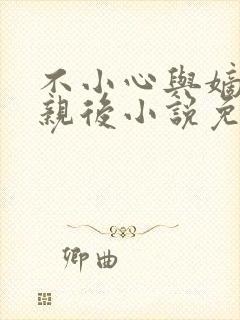 不小心與嫡
親後小說免
卿曲